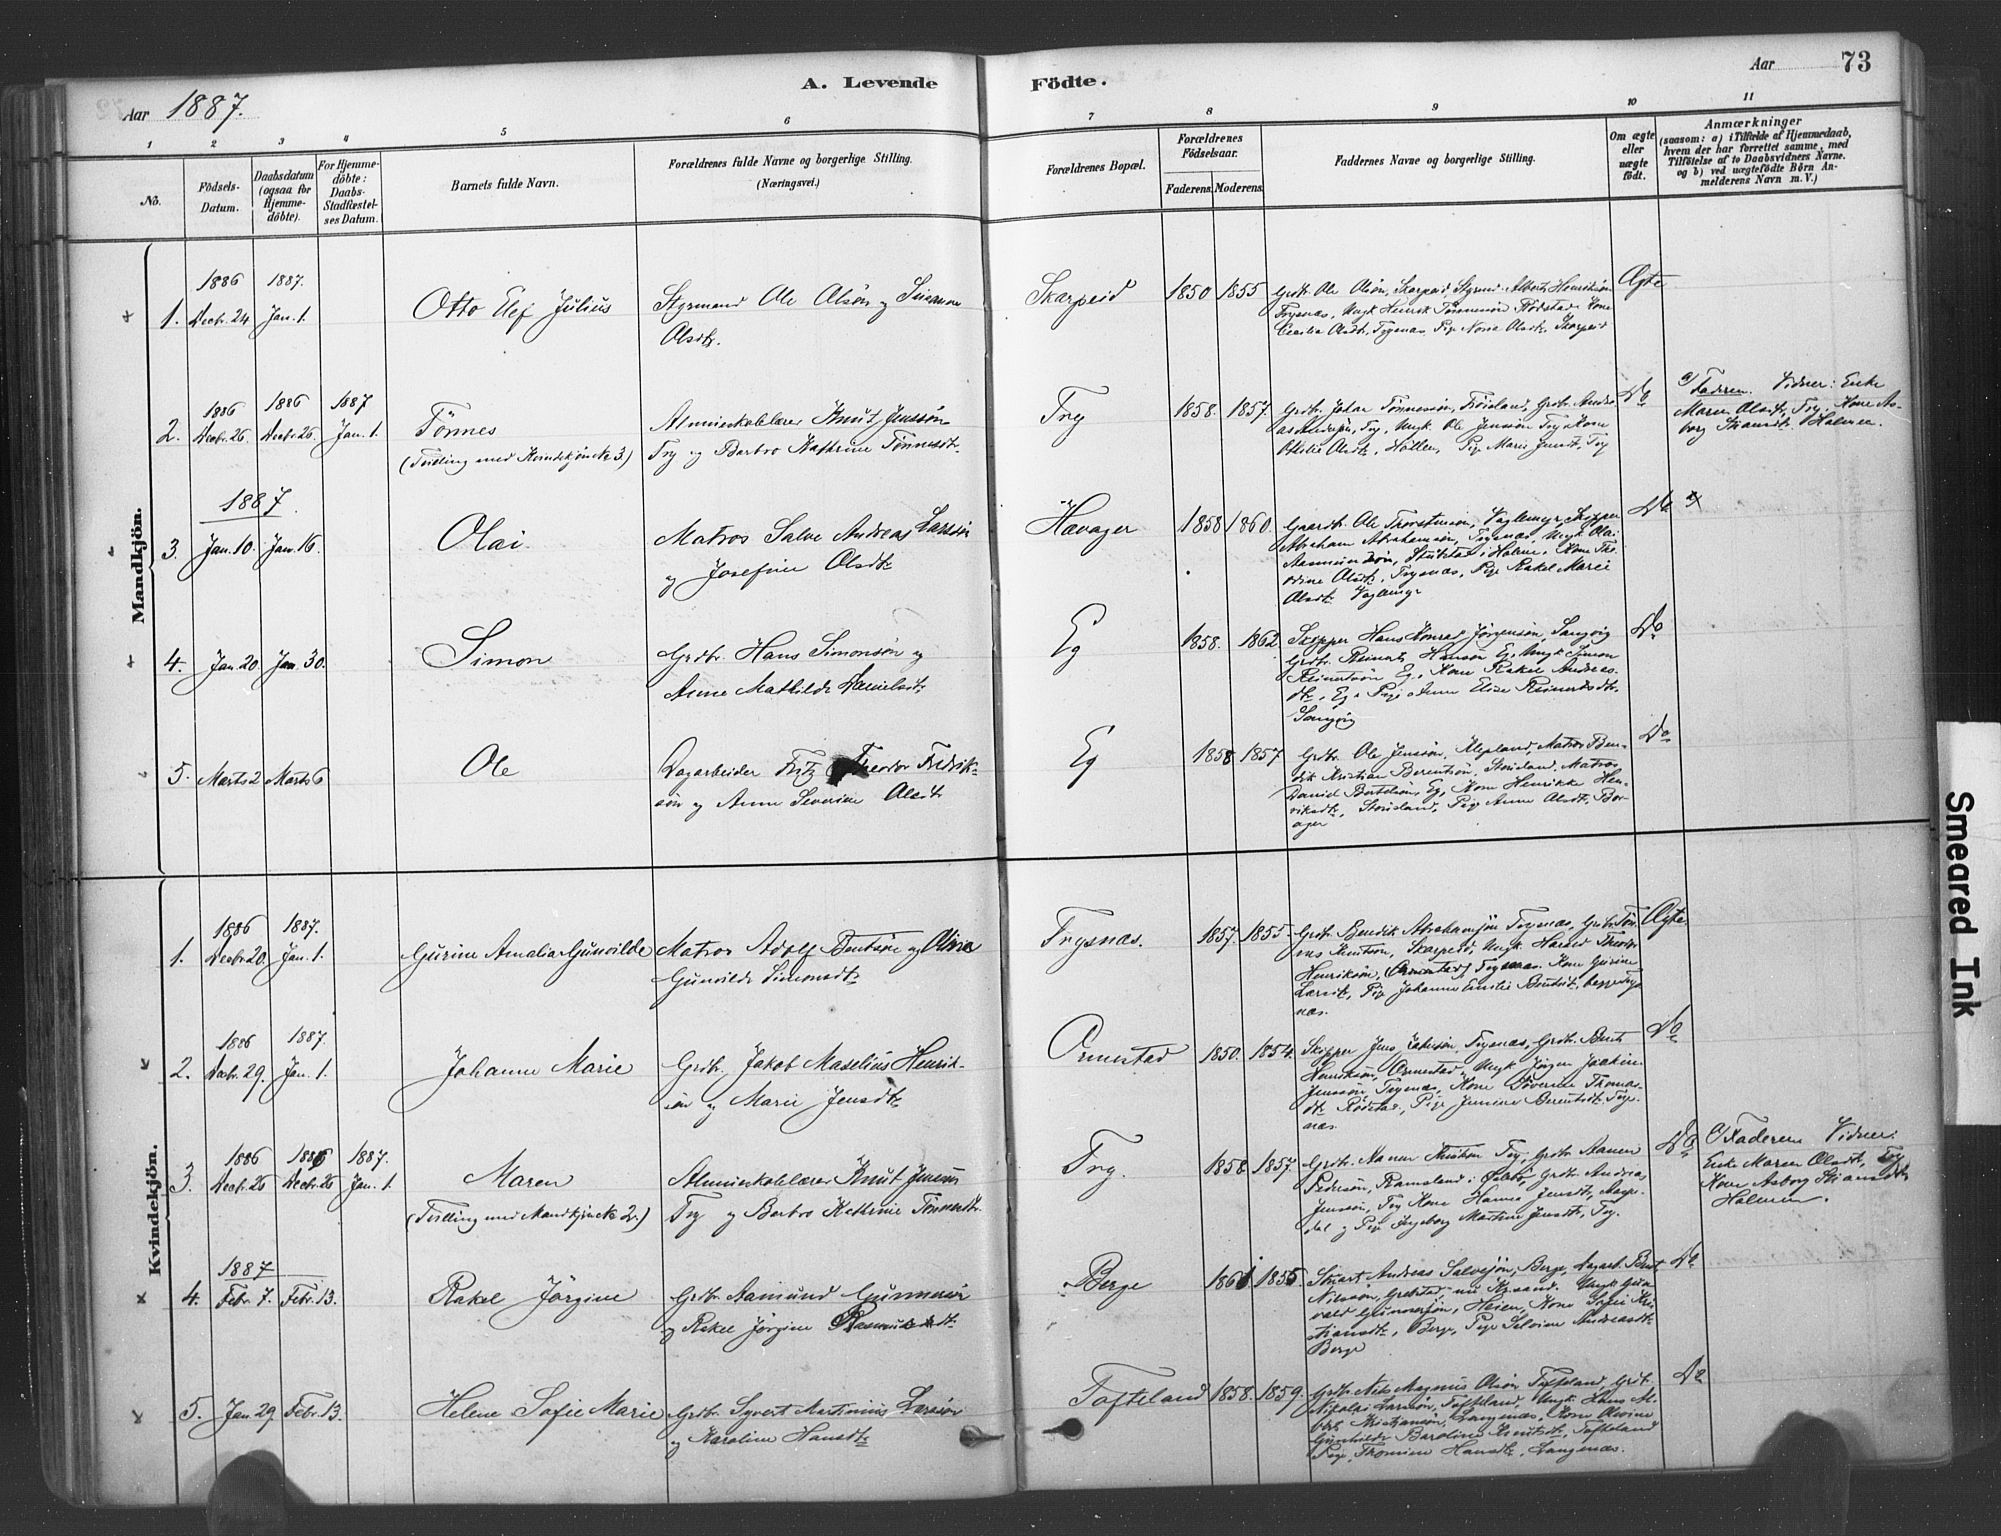 Aar 1887.
A. Levende
Födte.
Aar 73
1 2 3 4 5 6 7 8 9 10 11
No.
Födsels-Datum.
Daabsdatum (ogsaa for Hjemmedöbte).
For Hjemmedöbte: Daabs-Stadfæstelses Datum.
Barnets fulde Navn.
Forældrenes fulde Navne og borgerlige Stilling.
(Næringsvei.)
Forældrenes Bopæl.
Forældrenes Födselsaar.
Faderens. Moderens.
Faddernes Navne og borgerlige Stilling.
Om ægte eller uægte födt.
Anmærkninger
(saasom: a) i Tilfælde af Hjemmedaab, hvem der har forrettet samme, med Tilföielse af to Daabsvidners Navne, og b) ved uægtefödte Börn Anmelderens Navn m. V.)
Mandkjön.
1. 1886 Decbr. 24 1887. Jan. 1. Otto Elef Julius
Styrmand Ole Olsön og
Olsdtr.
Skarpeid 1850 1855
Grdbr. Ole Olsön, Skarpeid, Styrmd. Albert Henriksön
Trysnæs, Ungk. Henrik Tönnesön Rödstad, Kone
Cecilia Olsdtr, Trysnæs, Pige Olsdtr. Skarpeid
Ægte
2. 1886 Decbr. 26 1886 Decbr. 26. 1887 Jan. 1. Tönnes
(Tvilling med Kvindekjön No 3.)
Almueskolelærer Knut Jenssön
Try og Barbro Kathrine Tönnesdtr.
Try 1858. 1857.
Grdbr. Tönnesön, Grdbr. Andre-
as Try, Ungk. Ole Jenssön Try, Kone
Olsdtr, Pige Marie Jensdtr, Try
Do
a) Faderen. Vidner: Enke
Maren Olsdtr, Try, Kone As-
borg Holmen.
3. 1887 Jan. 10. Jan. 16. Olai.
Matros Salve Andreas Larssön
og Josefine Olsdtr
Havager 1858 1860.
Gaardbr. Ole Torstensön, Vaglemyr, Skipper
Abraham Abrahamsön, Trysnæs, Ungk. Olai
i Holme, Kone
Olsdtr, Trysnæs, Pige Rakel Marie
Olsdtr Vaglemyr
Do
4. Jan. 20. Jan. 30. Simon
Grdbr. Hans Simonsön og
Anne Mathilde Danielsdtr
Eg 1858. 1862
Skipper Hans Konrad Jörgensön, Langvig
Grdbr. Reinert Hansön Eg, Ungk. Simon
Reinertsön Eg, Kone Rakel Andreas-
dtr, Eg, Pige Anne Elise Reinertsdtr,
Langvig
Do
5. Marts 2 Marts 6 Ole
Dagarbeider Fritz Theodor Fredrik-
sön og Anne Severine Olsdtr
Eg 1858 1857
Grdbr. Ole Jenssön, Matros Ben-
dik Kristian Berentsön, Matros
David Bertelsön, Eg, Kone Henrikke Hen-
riksdtr, Pige Anne Olsdtr,
Do
Kvindekjön.
1. 1886 Decbr. 20. 1887. Jan. 1. Gurine Amalia Gunvilde
Matros Adolf Bentsön og Oline
Gunvilde Simonsdtr
Trysnæs. 1857. 1855.
Grdbr. Bendik Abrahamsön Trysnæs, Grdbr. Tön-
nes Knutson, Skarpeid, Ungk. Theodor
Henriksön, (Ormestad) Trysnæs. Kone Gurine
Larsdtr, Pige Johanne Emilie Bentsdtr, begge Trys-
næs.
Ægte
2. 1886 Decbr. 29. 1887. Jan. 1. Johanne Marie
Grdbr. Jakob Maselius Henrik-
sön og Marie Jensdtr
Ormestad 1850. 1854.
Skipper Jens Trysnæs, Grdbr. Bent
Henriksön, Ormestad, Ungk. Jörgen Joakim
Jenssön, Trysnæs, Kone Severine Thomas-
dtr. Rödstad, Pige Berentsdtr. Trys-
næs.
Do
3. 1886 Decbr. 26 1886 Decbr. 26 1887. Jan. 1. Maren
(Tvilling med Mandkjön No 2.)
Almueskolelærer Knut Jenssön
Try og Barbro Kathrine Tönnesdtr.
Try. 1858. 1857.
Grdbr. Try, Grdbr. Aanen
Pedersön, Ramsland i Grdbr. Andreas
Jenssön, Try Kone Hanna Jensdtr,
dal og Pige Ingeborg Martine Jensdtr, Try.
Do
a) Faderen Vidner:
Enke Maren Olsdtr, Try
Kone Asborg
Holmen.
4. 1887 Febr. 7. Febr. 13. Rakel Jörgine
Grdbr. Aamund Gunnersön
og Rakel Jörgine Rasmusdtr.
Berge 1861. 1855.
Andreas Salvesön, Berge, Dagarb. Bent
Nilsson, nu Krsand. Ungk.
Gunnersön, Heien, Kone Sofie Kri-
stiansdtr, Berge, Pige Andreasdtr
Berge
Do
5. Jan. 29. Febr. 13. Helene Sofie Marie
Grdbr. Syvert Martinius Larssön
og Karoline Hansdtr
Tofteland 1858. 1859.
Grdbr. Nils Magnus Olsön Tofteland, Grdbr.
Nikolai Larssön, Tofteland, Ungk. Hans Al-
bert Kristiansön, Langenæs, Kone
Gunhilde Knutsdtr, Tofteland
Pige Thomine Hansdtr, Langenæs.
Do
Smeared Ink